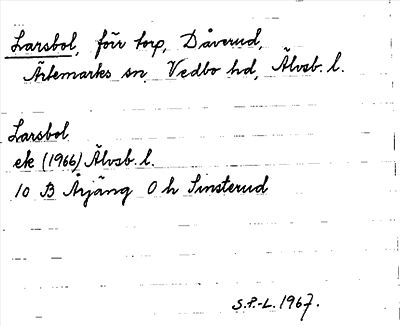 Larsbol, förr torp, Dåverud,
Ärtemarks sn, Vedbo hd, Älvsb. l.
Larsbol
ek (1966) Älvsb. l.
10 B Årjäng 0 h Sinsterud
S.P.-L. 1967.